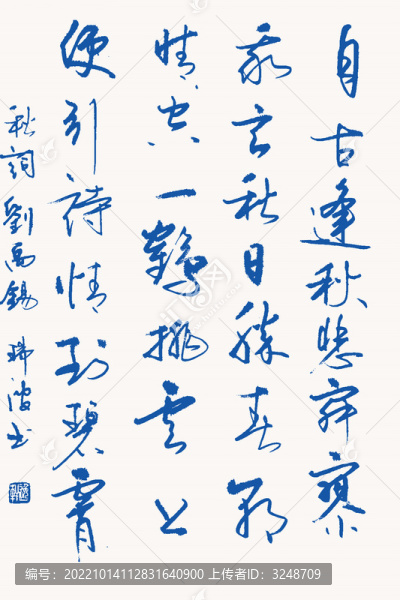 自古逢秋悲寂寥
我言秋日勝春朝
晴空一鶴排雲上
便引詩情到碧霄
秋詞 劉禹錫 瑞波书
编号：20221014112831640900 上传者ID：3248709